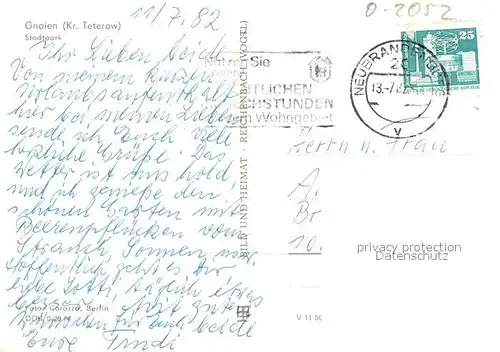 11/7.82
O-2052
Gnoien (Kr. Teterow)
Stadtpark
Ihr Lieben beide
Von meinem kurzen
Urlaubsaufenthalt
hier bei meinen Lieben
sende ich Euch viele
herzliche Grüße. Das
Wetter ist uns hold
und ich genieße den
schönen Garten mit
Beerenpflücken vom
Strauch, Sonnen,
hoffentlich geht es Dir
liebe Lotti, täglich etwas
besser. Mit guten
Wünschen für Euch beide
Eure Trudi
Foto: Darazza, Berlin
BILD UND HEIMAT · REICHENBACH (VOGTL)
V 11 50
Sie
TLICHEN
HSTUNDEN
Wohngebiet
NEUBRANDENBURG
13.-7.82
v
25
Herrn u. Frau
A.
Br
10.
privacy protection
Datenschutz